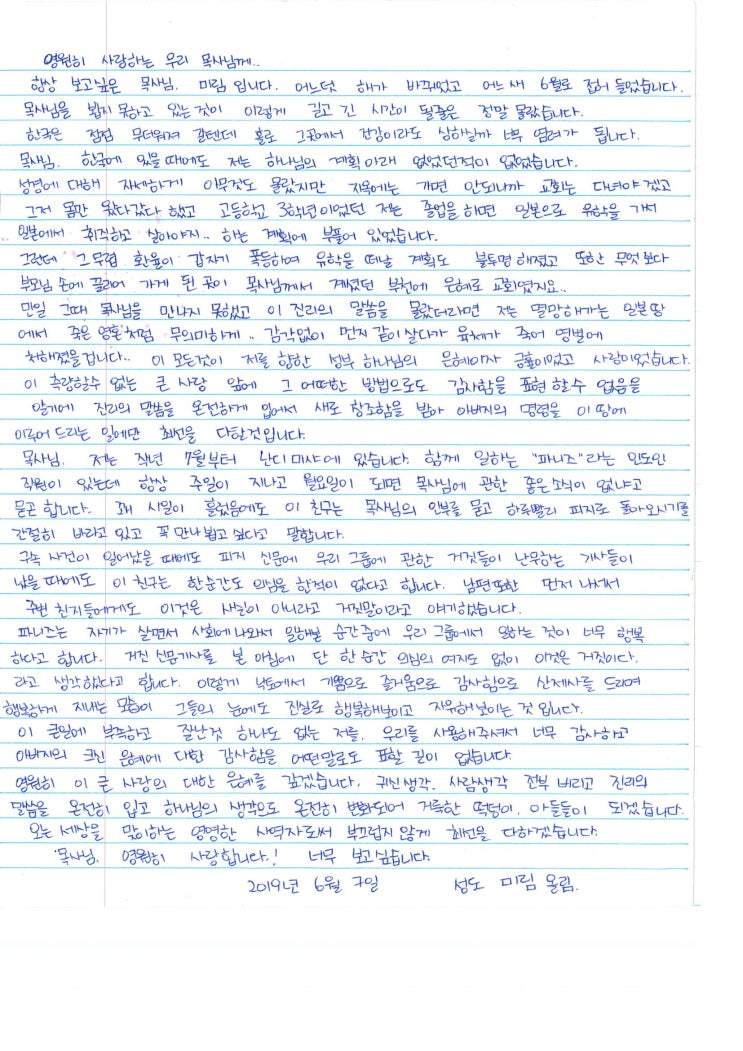 영원히 사랑하는 우리 목사님께..
항상 보고싶은 목사님. 미림 입니다. 어느덧 해가 바뀌었고 어느새 6월로 접어 들었습니다.
목사님을 뵙지 못하고 있는것이 이렇게 길고 긴 시간이 될줄은 정말 몰랐습니다.
한국은 점점 무더워져 갈텐데 홀로 그곳에서 건강이라도 상하실까 너무 염려가 됩니다.
목사님. 한국에 있을 때에도 저는 하나님의 계획아래 없었던적이 없었습니다.
성경에 대해 자세하게 아무것도 몰랐지만 지옥에는 가면 안되니까 교회는 다녀야겠고
그저 몸만 왔다갔다 했고 고등학교 3학년이었던 저는 졸업을 하면 일본으로 유학을 가서
일본에서 취직하고 살아야지.. 하는 계획에 부풀어 있었습니다.
그런데 그무렵 환율이 갑자기 폭등하여 유학을 떠날 계획도 불투명해졌고 또한 무엇보다
부모님 손에 끌리어 가게 된 곳이 목사님께서 계셨던 부천에 은혜로 교회였지요..
만일 그때 목사님을 만나지 못했고 이 진리의 말씀을 몰랐더라면 저는 멸망해가는 일본 땅
에서 죽은 영혼처럼 무의미하게.. 감각없이 먼지 같이 살다가 육체가 죽어 영벌에
처해졌을겁니다.. 이 모든것이 저를 향한 성부 하나님의 은혜이자 긍휼이었고 사랑이었습니다.
이 측량할수 없는 큰 사랑 앞에 그 어떠한 방법으로도 감사함을 표현 할 수 없음을
알기에 진리의 말씀을 온전하게 입어서 새로 창조함을 받아 아버지의 명령을 이 땅에
이루어 드리는 일에만 최선을 다할것입니다.
목사님. 저는 작년 7월부터 난디 미샤에 있습니다. 함께 일하는 "파니즈"라는 인도인
직원이 있는데 항상 주일이 지나고 월요일이 되면 목사님에 관한 좋은소식이 없냐고
묻곤 합니다. 꽤 시일이 흘렀음에도 이 친구는 목사님의 안부를 묻고 하루빨리 피지로 돌아오시기를
간절히 바라고 있고 꼭 만나 뵙고 싶다고 말합니다.
구속 사건이 일어났을 때에도 피지 신문에 우리 그룹에 관한 거짓들이 난무하는 기사들이
났을 때에도 이 친구는 한순간도 의심을 한적이 없다고 합니다. 남편또한 먼저 나서서
주변 친지들에게도 이것은 사실이 아니라고 거짓말이라고 얘기했습니다.
파니즈는 자기가 살면서 사회에나와서 일해본 순간중에 우리 그룹에서 일하는 것이 너무 행복
하다고 합니다. 거짓 신문기사를 본 아침에 단 한순간 의심의 여지도 없이 이것은 거짓이다.
라고 생각했다고 합니다. 이렇게 낙토에서 기쁨으로 즐거움으로 감사함으로 산제사를 드리며
행복하게 지내는 모습이 그들의 눈에도 진실로 행복해보이고 자유해보이는 것 입니다.
이 큰일에 부족하고 잘난것 하나도 없는 저를, 우리를 사용해주셔서 너무 감사하고
아버지의 크신 은혜에 대한 감사함을 어떤말로도 표할 길이 없습니다.
영원히 이 큰 사랑의 대한 은혜를 갚겠습니다. 귀신생각. 사람생각 전부 버리고 진리의
말씀을 온전히 입고 하나님의 생각으로 온전히 변화되어 거룩한 떡덩이, 아들들이 되겠습니다.
오는 세상을 맞이하는 영영한 사역자로써 부끄럽지 않게 최선을 다하겠습니다.
목사님. 영원히 사랑합니다! 너무 보고싶습니다.
2019년 6월 7일 성도 미림 올림.